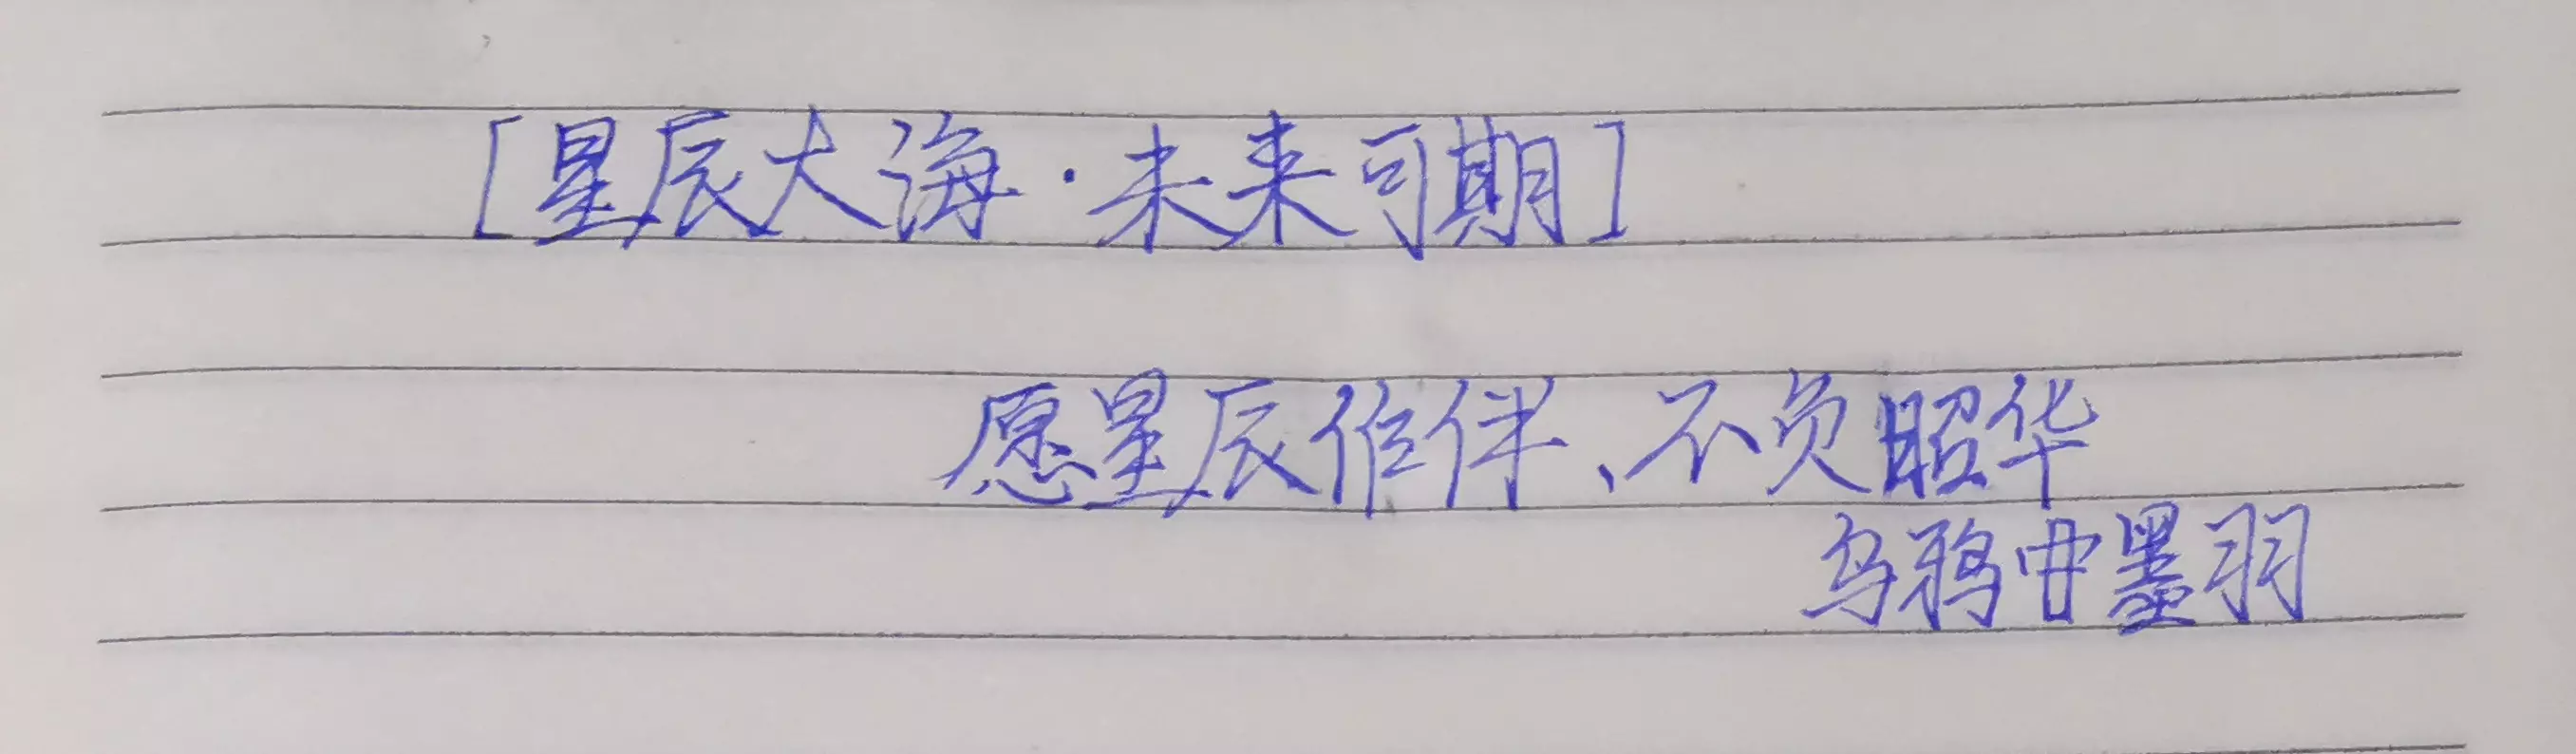 [星辰大海·未来可期]
愿星辰作伴、不负昭华
乌鸦中墨羽